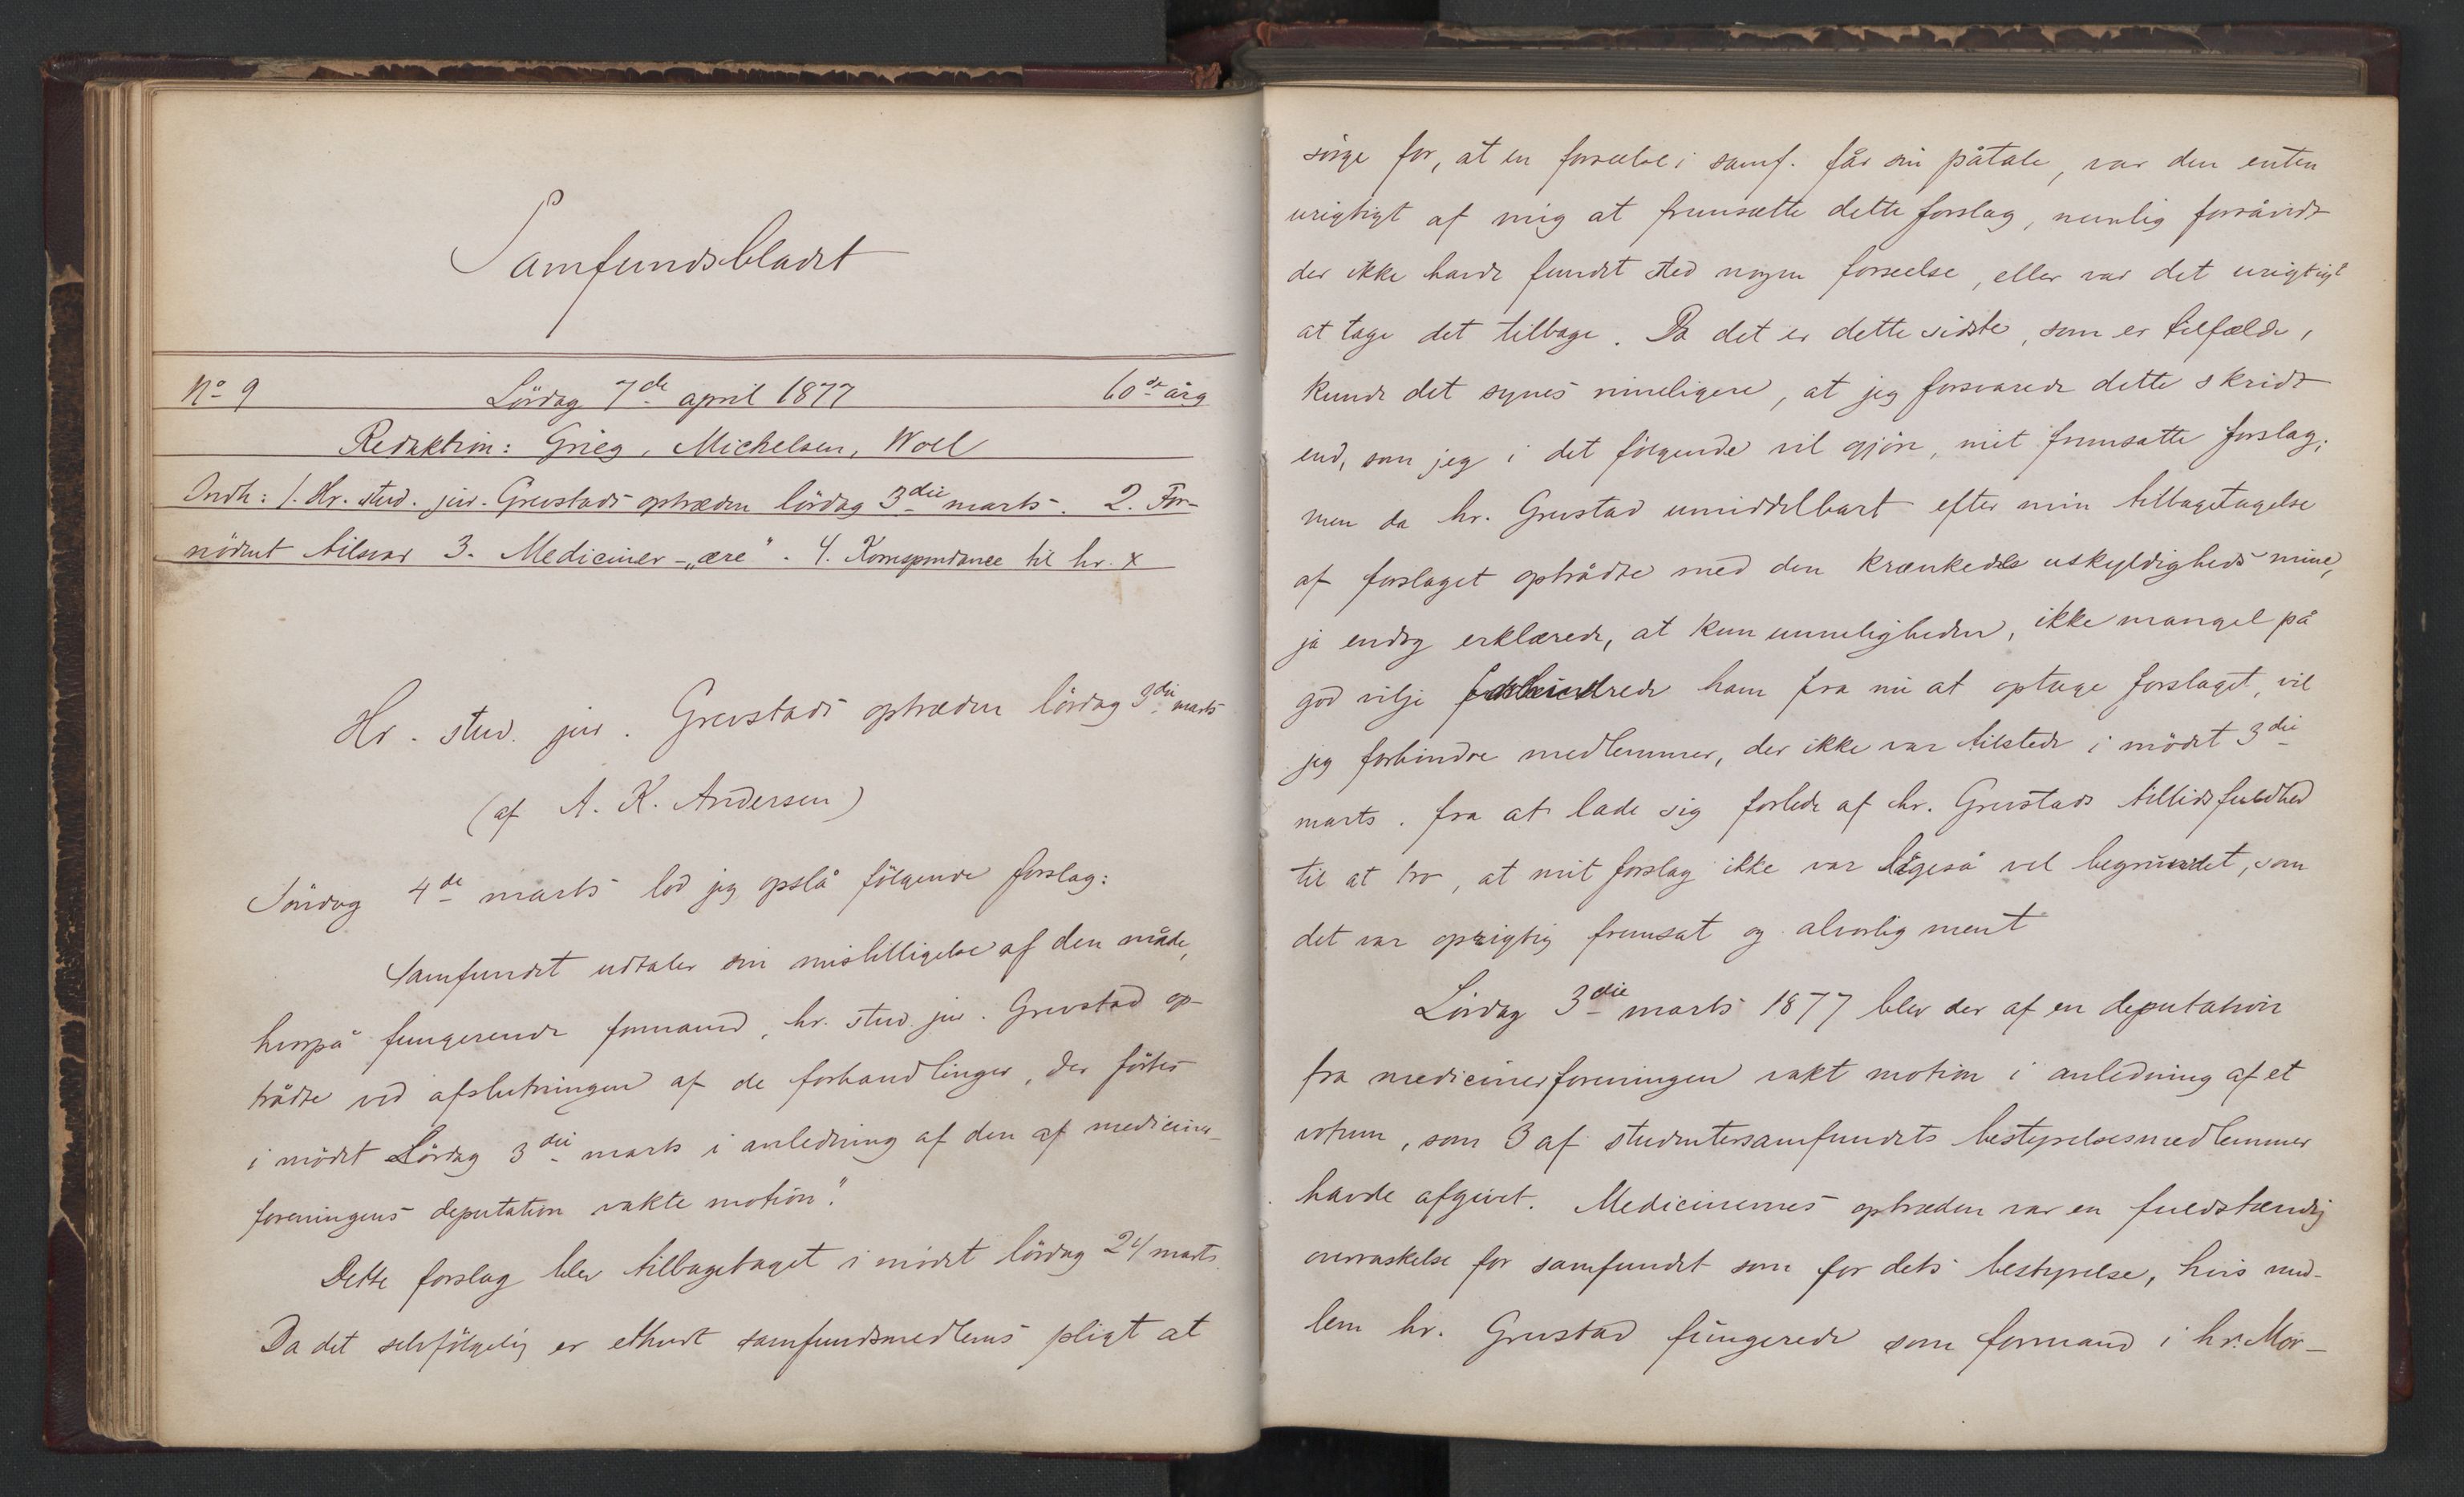 Samfundsbladet
No 9 Lördag 7de april 1877 60de årg
Redaktion: Grieg, Michelsen, Woll
Indh: 1. Hr. stud. jur. Grevstads optræden lördag 3die marts. 2. For-
nödent tilsvar 3. Mediciner-„ære". 4. Korrespondance til hr. X
Hr. stud. jur. Grevstads optræden lördag 3die marts
(af A. K. Andersen)
Söndag 4de marts lod jeg opslå fölgende forslag:
Samfundet udtaler sin misbilligelse af den måde,
hvorpå fungerende formand, hr. stud. jur. Grevstad op-
trådte ved afslutningen af de forhandlinger, der förtes
i mödet Lördag 3die marts i anledning af den af mediciner-
foreningens deputation vakte motion."
Dette forslag blev tilbagetaget i mödet lördag 24 marts.
Da det selvfölgelig er ethvert samfundsmedlems pligt at
sörge for, at en forseelse i samf. får sin påtale, var den enten
urigtigt af mig at fremsætte dette forslag, nemlig forsåvidt
der ikke havde fundet sted nogen forseelse, eller var det urigtigt
at tage det tilbage. Da det er dette sidste, som er tilfælde,
kunde det synes rimeligere, at jeg forsvarede dette skridt
end, som jeg i det fölgende vil gjöre, mit fremsatte forslag;
men da hr. Grevstad umiddelbart efter min tilbagetagelse
af forslaget optrådte med den krænkede uskyldigheds mine,
ja endog erklærede, at kun umuligheden, ikke mangel på
god vilje forhindrede ham fra nu at optage forslaget, vil
jeg forhindre medlemmer, der ikke var tilstede i mödet 3die
marts. fra at lade sig forlede af hr. Grevstads tillidsfuldhed
til at tro, at mit forslag ikke var ligeså vel begrundet, som
det var oprigtig fremsat og alvorlig ment
Lördag 3die marts 1877 blev der af en deputation
fra medicinerforeningen vakt motion i anledning af et
votum, som 3 af studentersamfundets bestyrelsesmedlemmer
havde afgivet. Medicinernes optræden var en fuldstændig
overraskelse for samfundet som for dets bestyrelse, hvis med-
lem hr. Grevstad fungerede som formand i hr. Mor-